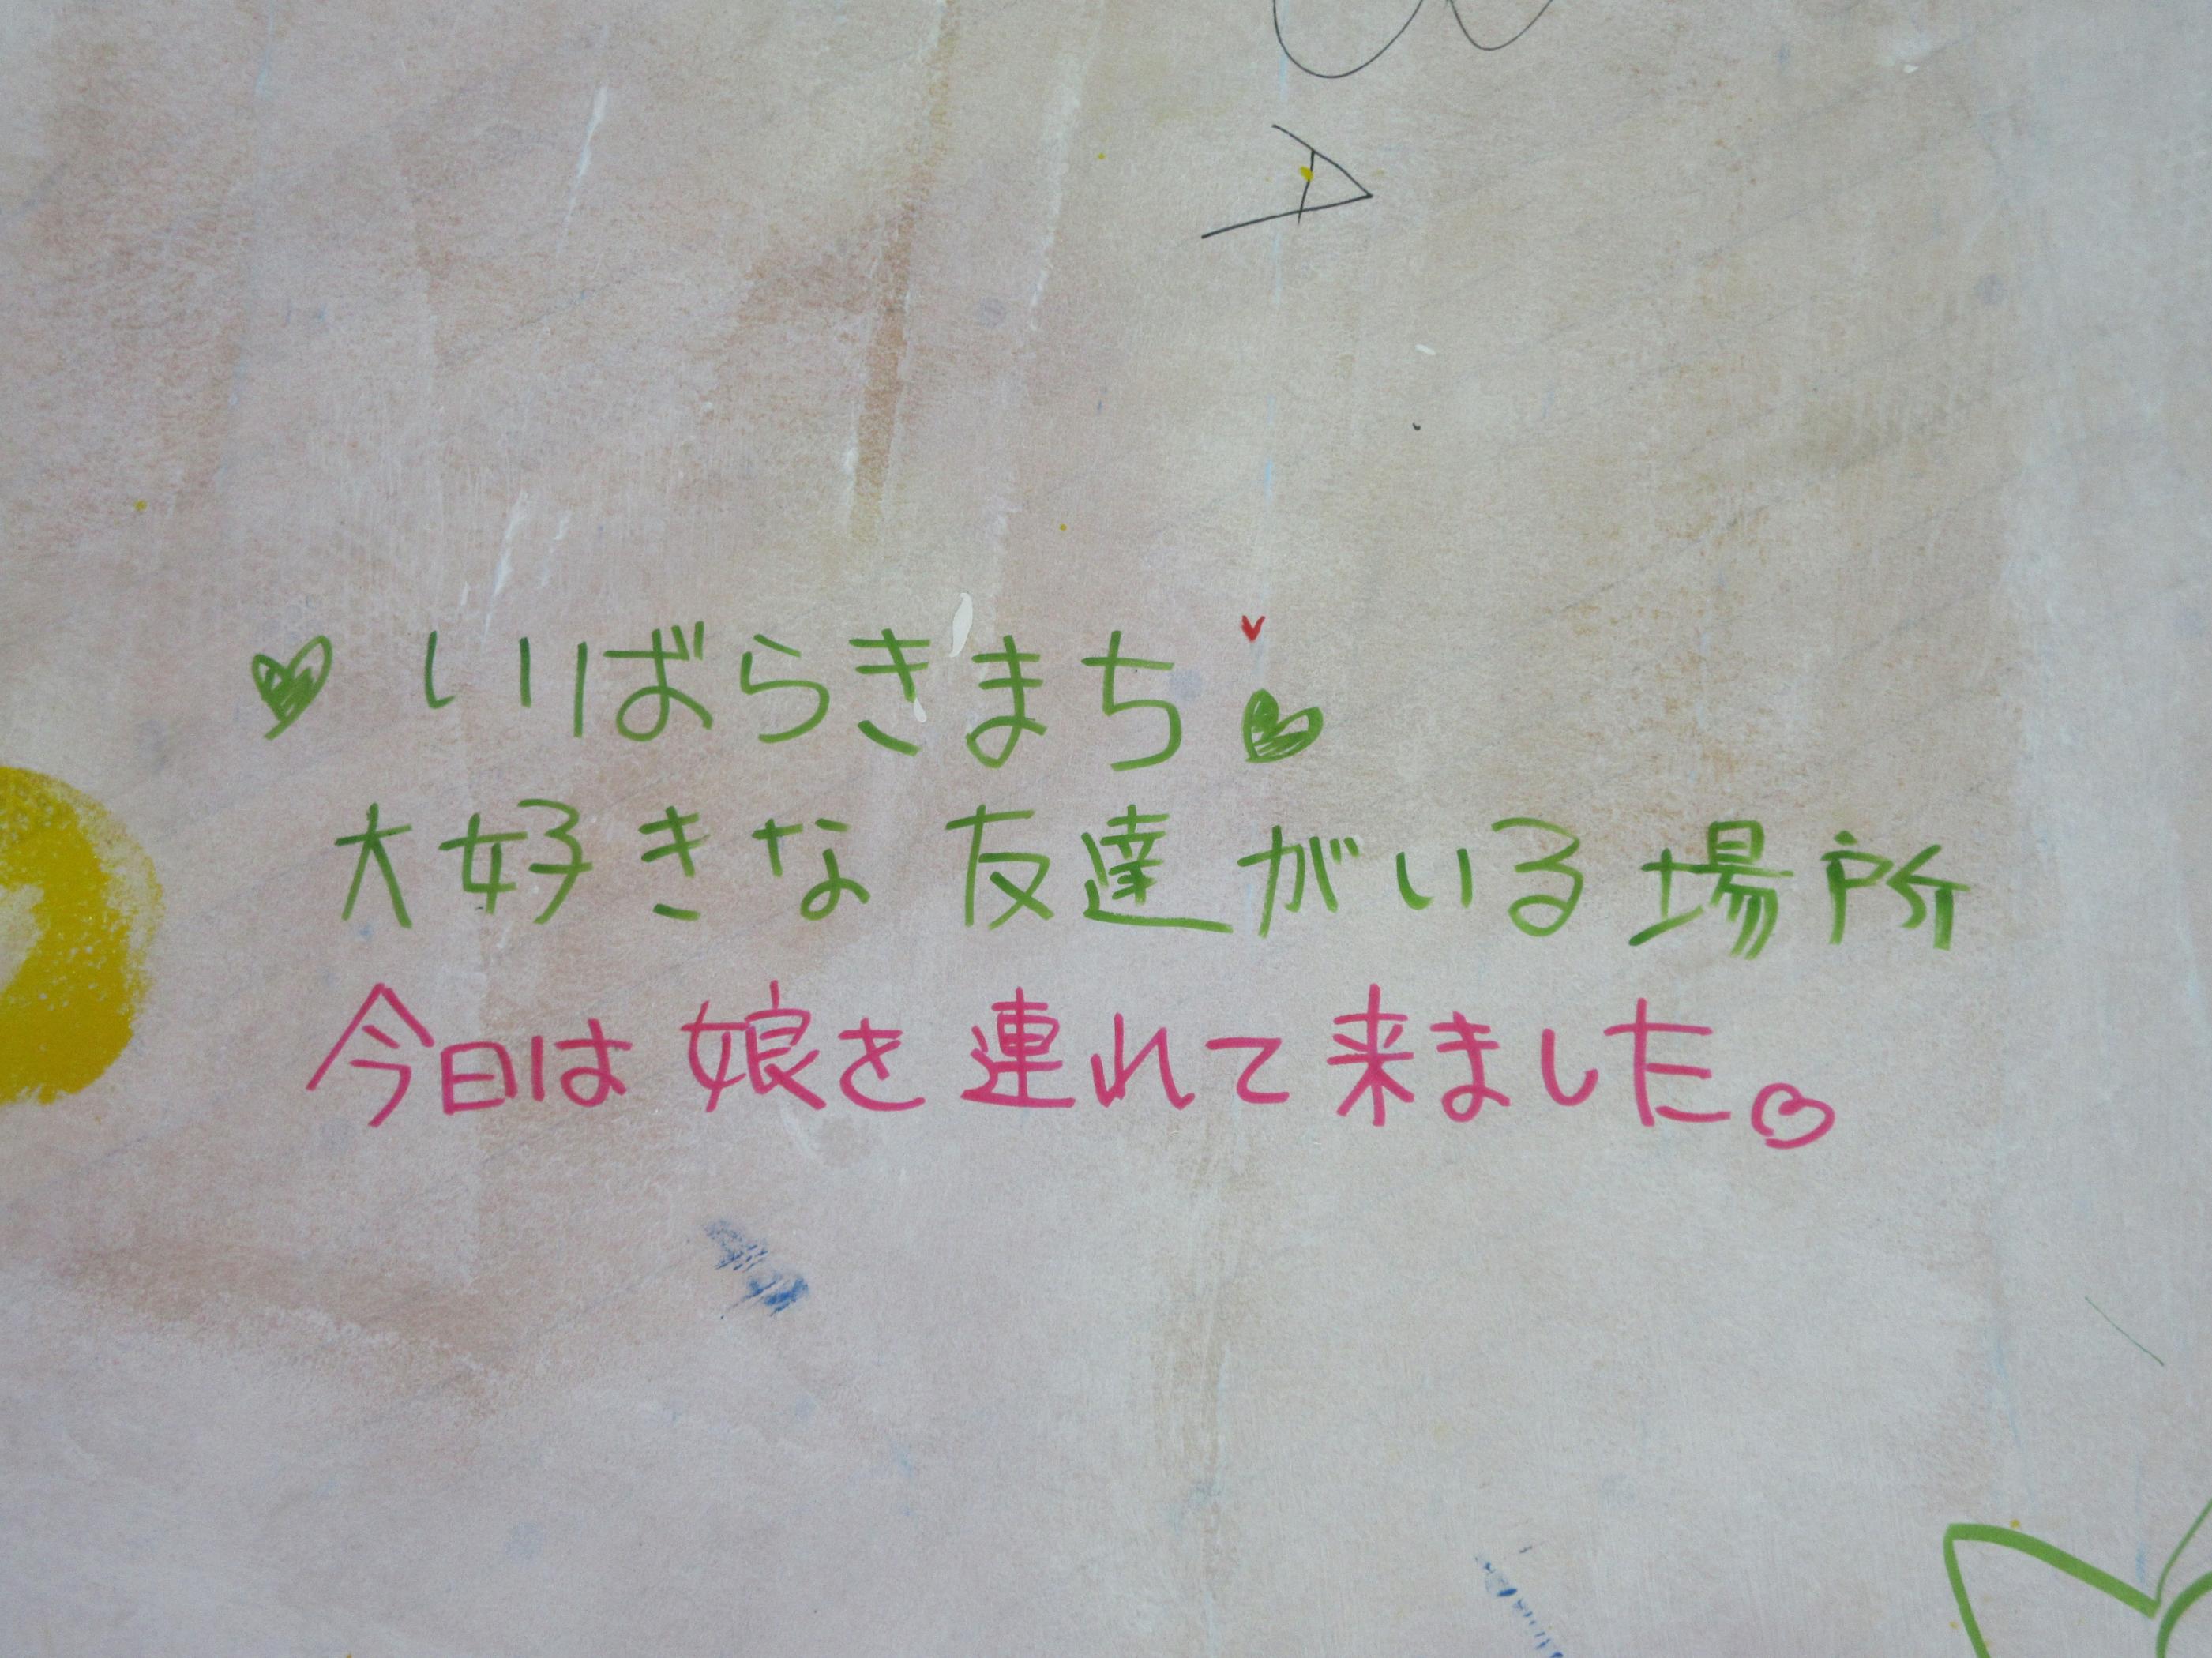 ♥ いばらきまち ♥
大好きな 友達がいる 場所
今日は 娘を 連れて 来ました。♡